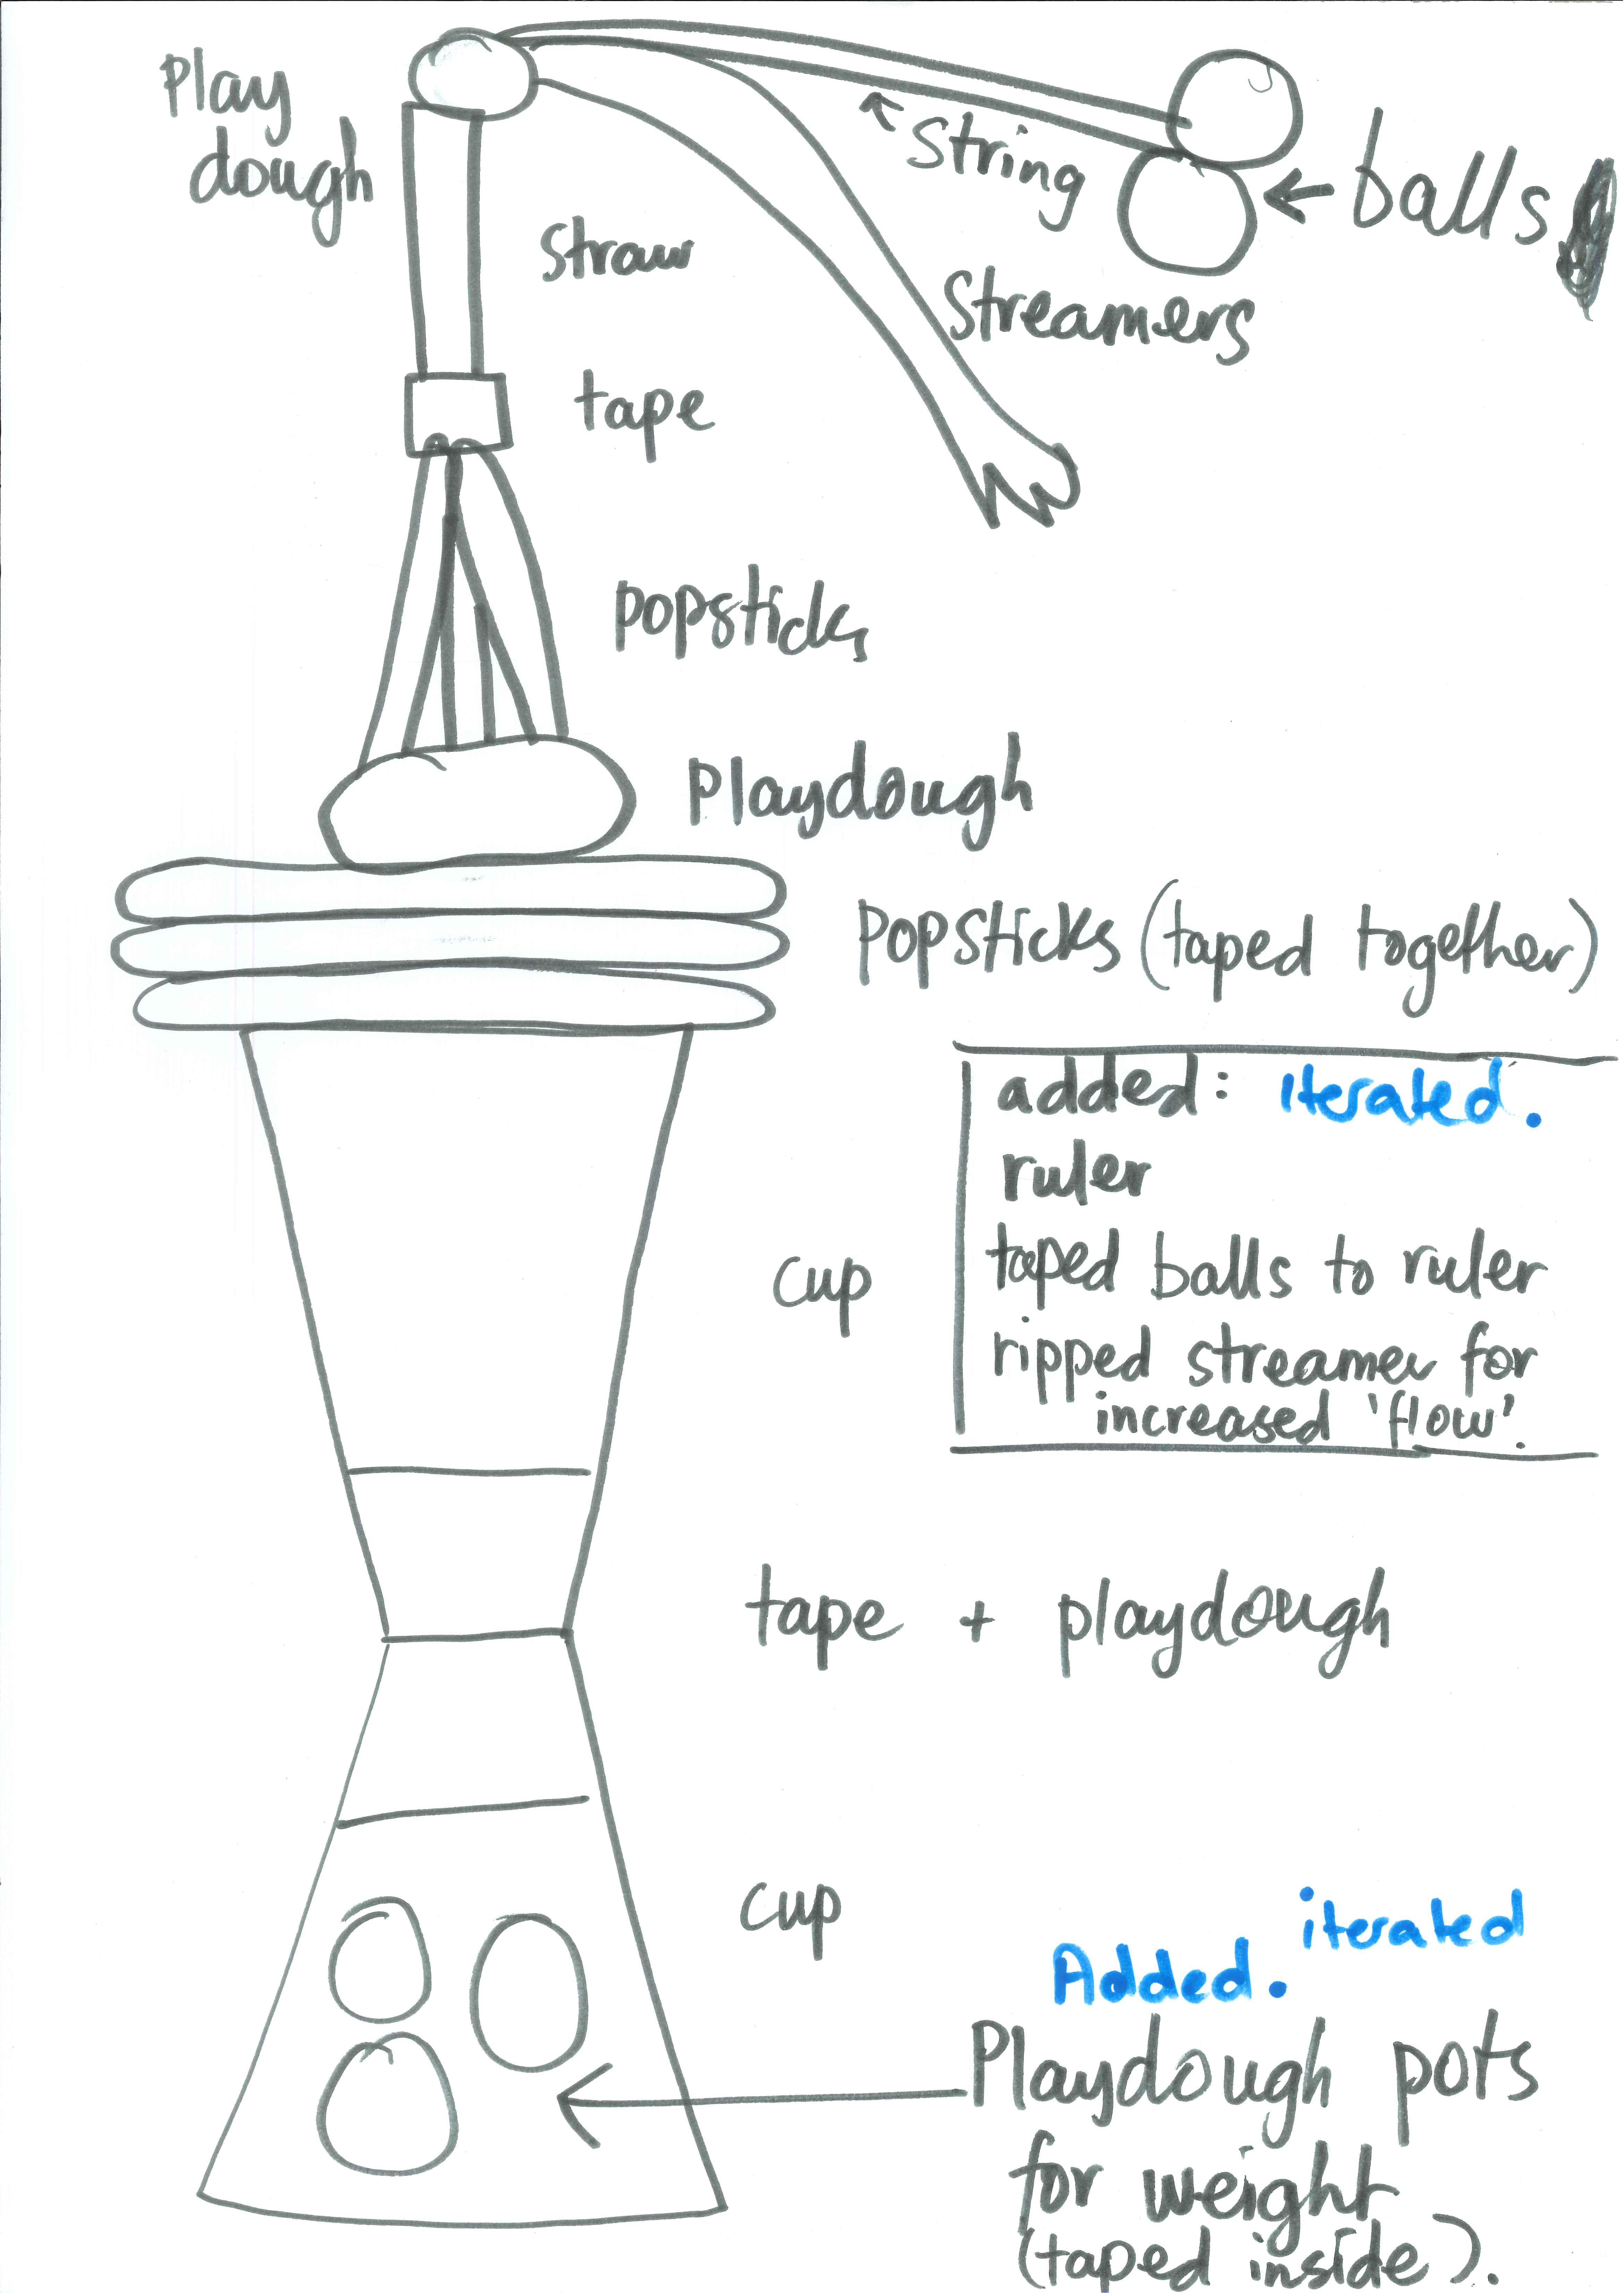 Play
dough
String
balls
straw
Streamers
tape
popsticks
Playdough
Popsticks (taped together)
added: iterated.
ruler
taped balls to ruler
ripped streamer for
increased 'flow'.
cup
tape + playdough
cup
iterated
Added.
Playdough pots
for weight
(taped inside).